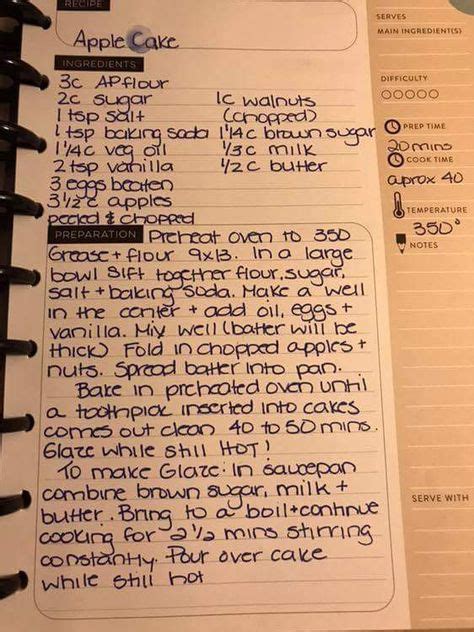 RECIPE
Apple Cake
INGREDIENTS
3c AP flour
2c sugar
1 tsp salt
1 tsp baking soda
1 1/4c veg oil
2 tsp vanilla
3 eggs beaten
3 1/2 c apples
peeled & chopped
1c walnuts
(chopped)
1 1/4c brown sugar
1/3c milk
1/2c butter
PREPARATION Preheat oven to 350
Grease + flour 9x13. In a large
bowl sift together flour, sugar,
salt + baking soda. Make a well
in the center + add oil, eggs +
vanilla. Mix well (batter will be
thick) Fold in chopped apples +
nuts. Spread batter into pan.
Bake in preheated oven until
a toothpick inserted into cakes
comes out clean 40 to 50 mins.
Glaze while still HOT!
To make Glaze: In saucepan
combine brown sugar, milk +
butter. Bring to a boil + continue
cooking for 2 1/2 mins stirring
constantly. Pour over cake
while still hot
SERVES
MAIN INGREDIENT(S)
DIFFICULTY
PREP TIME
20 mins
COOK TIME
aprox 40
TEMPERATURE
350°
NOTES
SERVE WITH